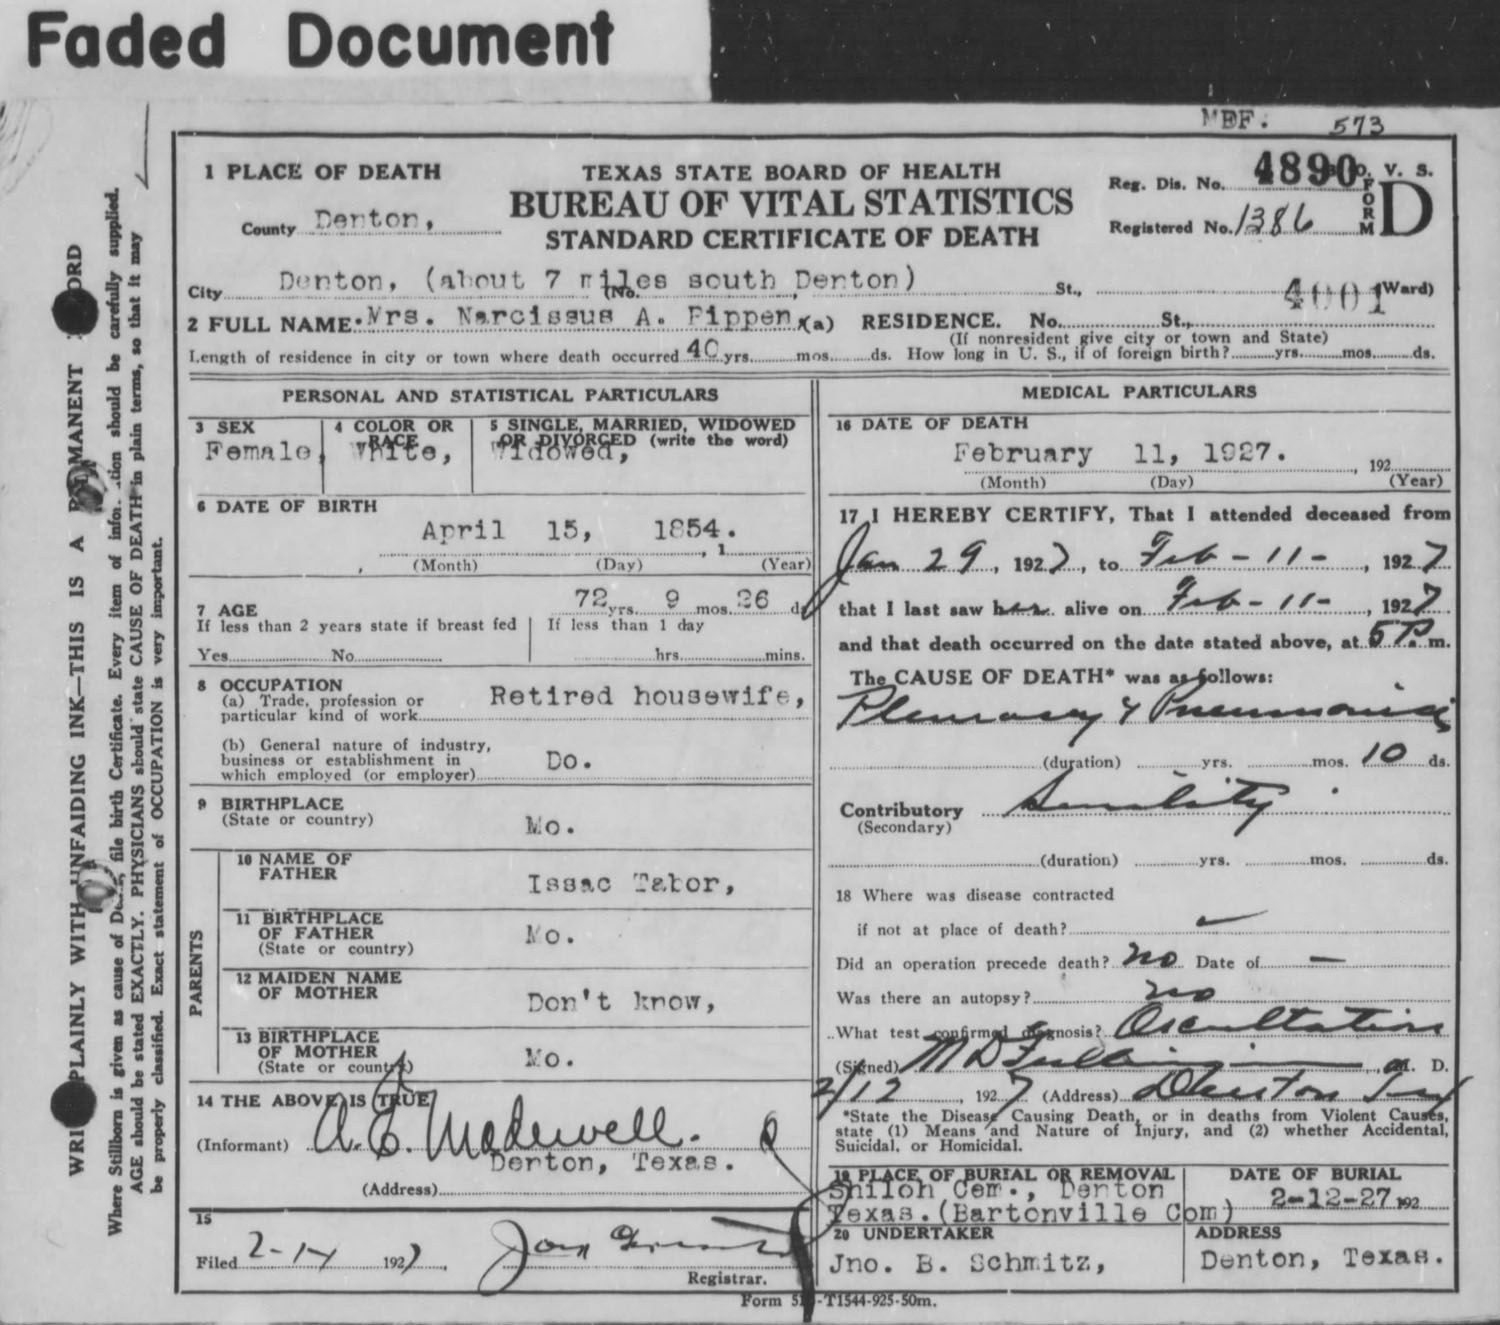 Faded Document
MEF. 573
1 PLACE OF DEATH
TEXAS STATE BOARD OF HEALTH
BUREAU OF VITAL STATISTICS
STANDARD CERTIFICATE OF DEATH
Reg. Dis. No. 4890 V. S.
FORM D
Registered No. 1386
County Denton,
City Denton, (about 7 miles south Denton) (No. St., 4001 Ward)
2 FULL NAME Mrs. Narcissus A. Pippen, (a) RESIDENCE. No. St.,
(If nonresident give city or town and State)
Length of residence in city or town where death occurred 40 yrs. mos. ds. How long in U. S., if of foreign birth? yrs. mos. ds.
PERSONAL AND STATISTICAL PARTICULARS
3 SEX
Female,
4 COLOR OR RACE
White,
5 SINGLE, MARRIED, WIDOWED
OR DIVORCED (write the word)
Widowed,
6 DATE OF BIRTH
April 15, 1854.
, 1
(Month) (Day) (Year)
7 AGE 72 yrs. 9 mos. 26 d
If less than 2 years state if breast fed
Yes No
If less than 1 day
hrs. mins.
8 OCCUPATION
(a) Trade, profession or
particular kind of work
Retired housewife,
(b) General nature of industry,
business or establishment in
which employed (or employer)
Do.
9 BIRTHPLACE
(State or country)
Mo.
PARENTS
10 NAME OF
FATHER
Issac Tabor,
11 BIRTHPLACE
OF FATHER
(State or country)
Mo.
12 MAIDEN NAME
OF MOTHER
Don't know,
13 BIRTHPLACE
OF MOTHER
(State or country)
Mo.
14 THE ABOVE IS TRUE
(Informant) A. E. Madewell.
Denton, Texas.
(Address)
15
Filed 2-14 1927,
Registrar.
MEDICAL PARTICULARS
16 DATE OF DEATH
February 11, 1927.
, 192
(Month) (Day) (Year)
17 I HEREBY CERTIFY, That I attended deceased from
Jan 29, 1927, to Feb-11-, 1927
that I last saw her alive on Feb-11-, 1927
and that death occurred on the date stated above, at 5 P. m.
The CAUSE OF DEATH* was as follows:
Pleurosy & Pneumonia
(duration) yrs. mos. 10 ds.
Contributory Senility
(Secondary)
(duration) yrs. mos. ds.
18 Where was disease contracted
if not at place of death?
Did an operation precede death? no Date of —
Was there an autopsy? no
What test confirmed diagnosis? Oscultation
(Signed) M D , M. D.
2/12, 1927 (Address) Denton Tex
*State the Disease Causing Death, or in deaths from Violent Causes,
state (1) Means and Nature of Injury, and (2) whether Accidental,
Suicidal, or Homicidal.
19 PLACE OF BURIAL OR REMOVAL
Shiloh Cem., Denton
Texas.(Bartonville Com)
DATE OF BURIAL
2-12-27 192
20 UNDERTAKER
Jno. B. Schmitz,
ADDRESS
Denton, Texas.
Form -T1544-925-50m.
PLAINLY WITH UNFAIDING INK—THIS IS A PERMANENT RECORD
Where Stillborn is given as cause of Death, file birth Certificate. Every item of information should be carefully supplied.
AGE should be stated EXACTLY. PHYSICIANS should state CAUSE OF DEATH in plain terms, so that it may
be properly classified. Exact statement of OCCUPATION is very important.